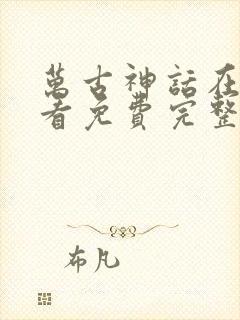 萬古神話在
看免費完整
布凡